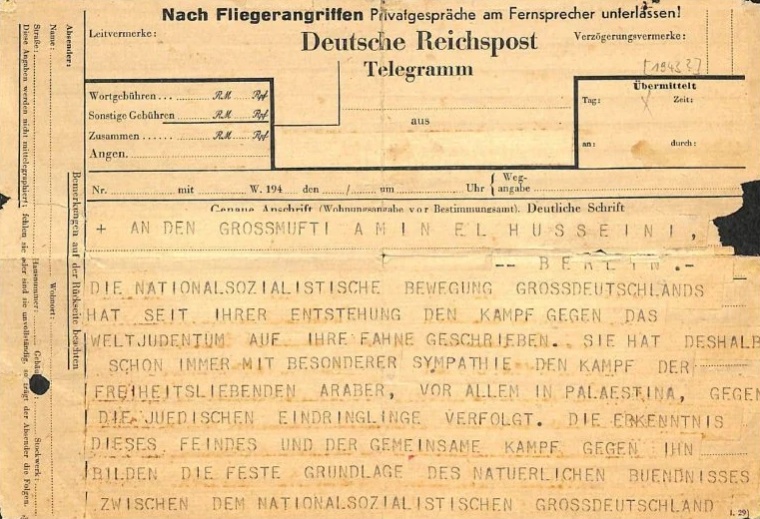 Nach Fliegerangriffen Privatgespräche am Fernsprecher unterlassen!
Leitvermerke:
Deutsche Reichspost
Verzögerungsvermerke:
Telegramm
[1943?]
Übermittelt
Tag: Zeit:
an: durch:
Wortgebühren... RM Rpf
Sonstige Gebühren RM Rpf
Zusammen.... RM Rpf
Angen.
aus
Nr. mit W. 194 den / um Uhr
Weg-
angabe
Genaue Anschrift (Wohnungsangabe vor Bestimmungsamt). Deutliche Schrift
+ AN DEN GROSSMUFTI AMIN EL HUSSEINI,
-- BERLIN.-
DIE NATIONALSOZIALISTISCHE BEWEGUNG GROSSDEUTSCHLANDS
HAT SEIT IHRER ENTSTEHUNG DEN KAMPF GEGEN DAS
WELTJUDENTUM AUF IHRE FAHNE GESCHRIEBEN. SIE HAT DESHALB
SCHON IMMER MIT BESONDERER SYMPATHIE DEN KAMPF DER
FREIHEITSLIEBENDEN ARABER, VOR ALLEM IN PALAESTINA, GEGEN
DIE JUEDISCHEN EINDRINGLINGE VERFOLGT. DIE ERKENNTNIS
DIESES FEINDES UND DER GEMEINSAME KAMPF GEGEN IHN
BILDEN DIE FESTE GRUNDLAGE DES NATUERLICHEN BUENDNISSES
ZWISCHEN DEM NATIONALSOZIALISTISCHEN GROSSDEUTSCHLAND
Bemerkungen auf der Rückseite beachten
Absender:
Name: Wohnort:
Straße: Hausnummer: Stockwerk:
Diese Angaben werden nicht mittelegraphiert; fehlen sie oder sind sie unvollständig, so trägt der Absender die Folgen.